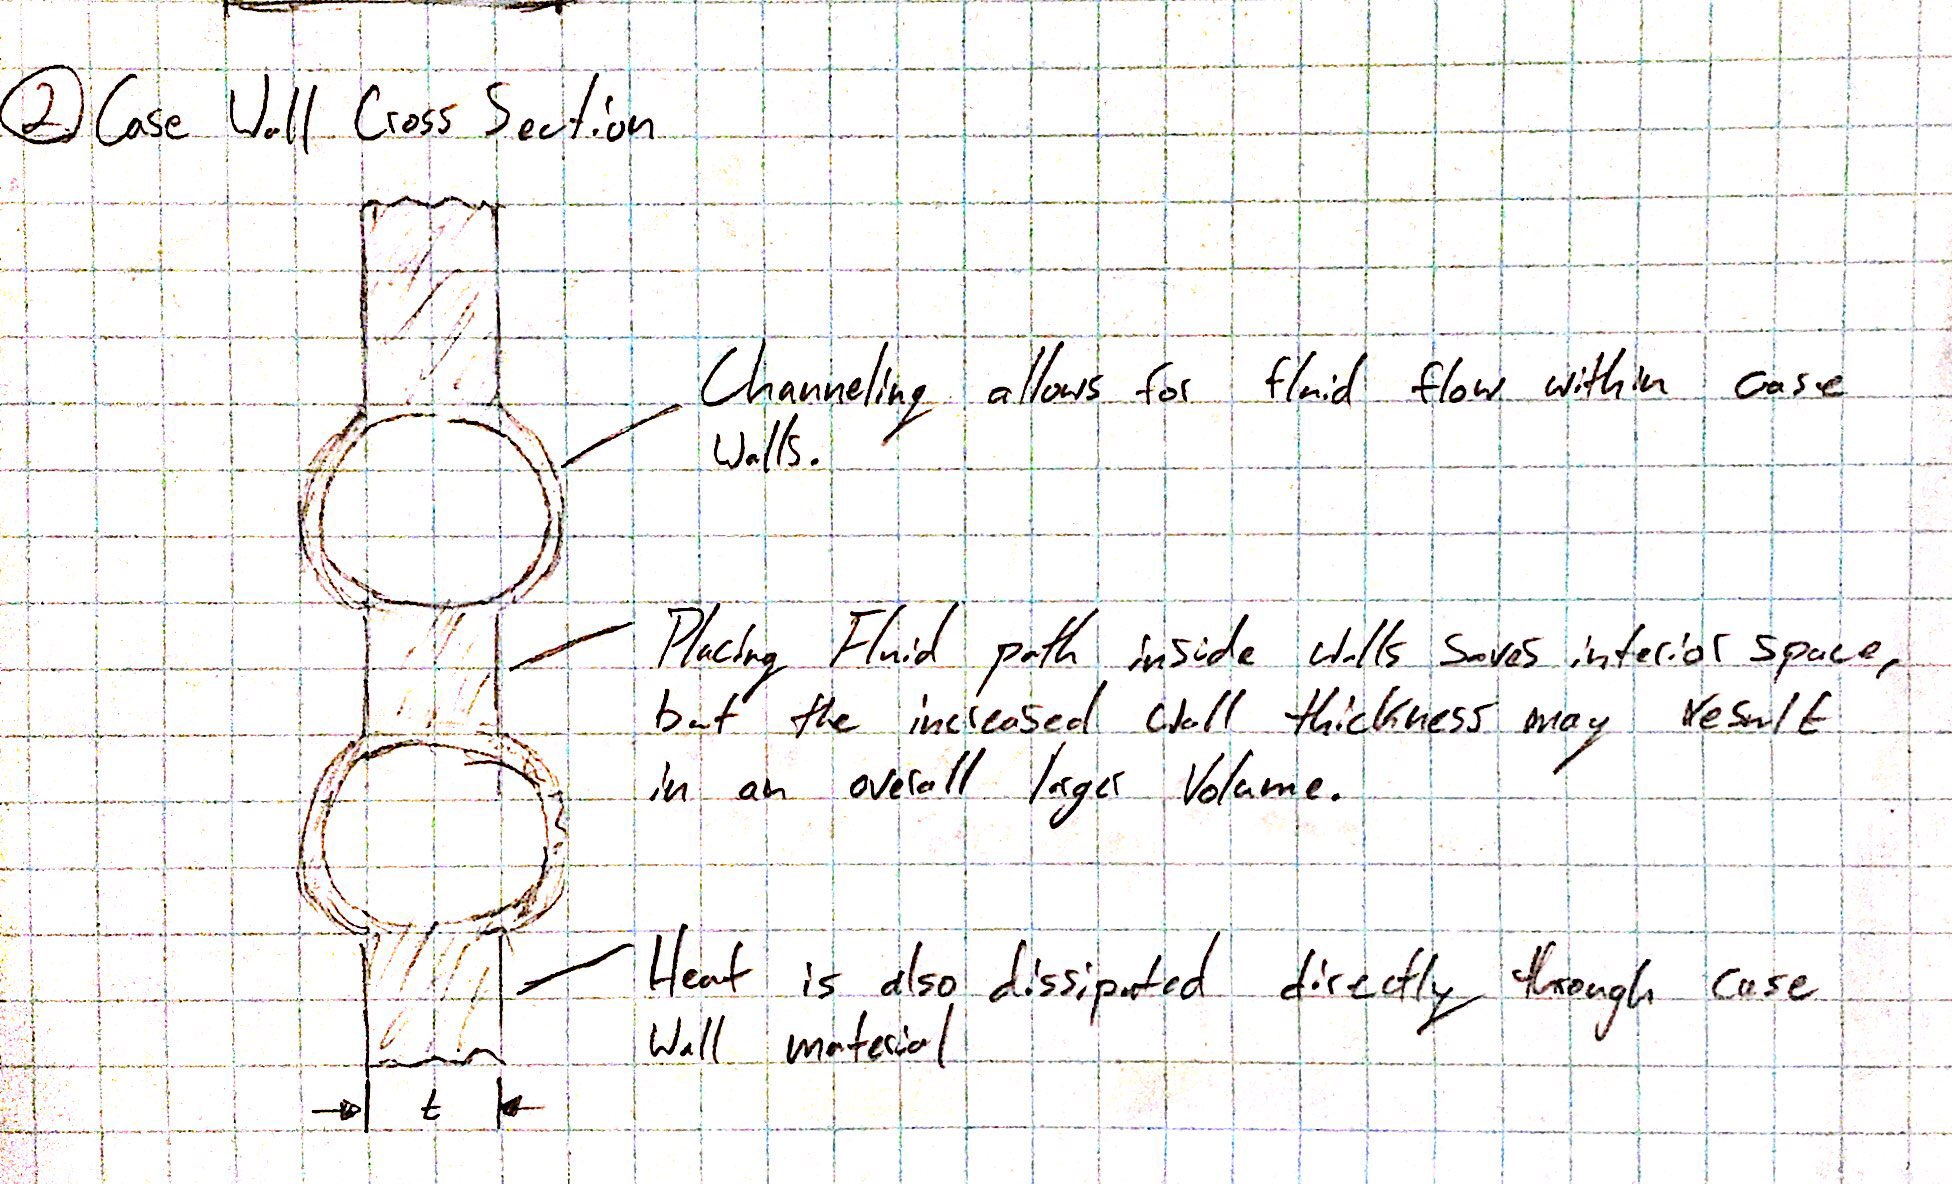 2 Case Wall Cross Section
Channeling allows for fluid flow within case
walls.
Placing Fluid path inside walls saves interior space,
but the increased wall thickness may result
in an overall larger volume.
Heat is also dissipated directly through case
wall material
t